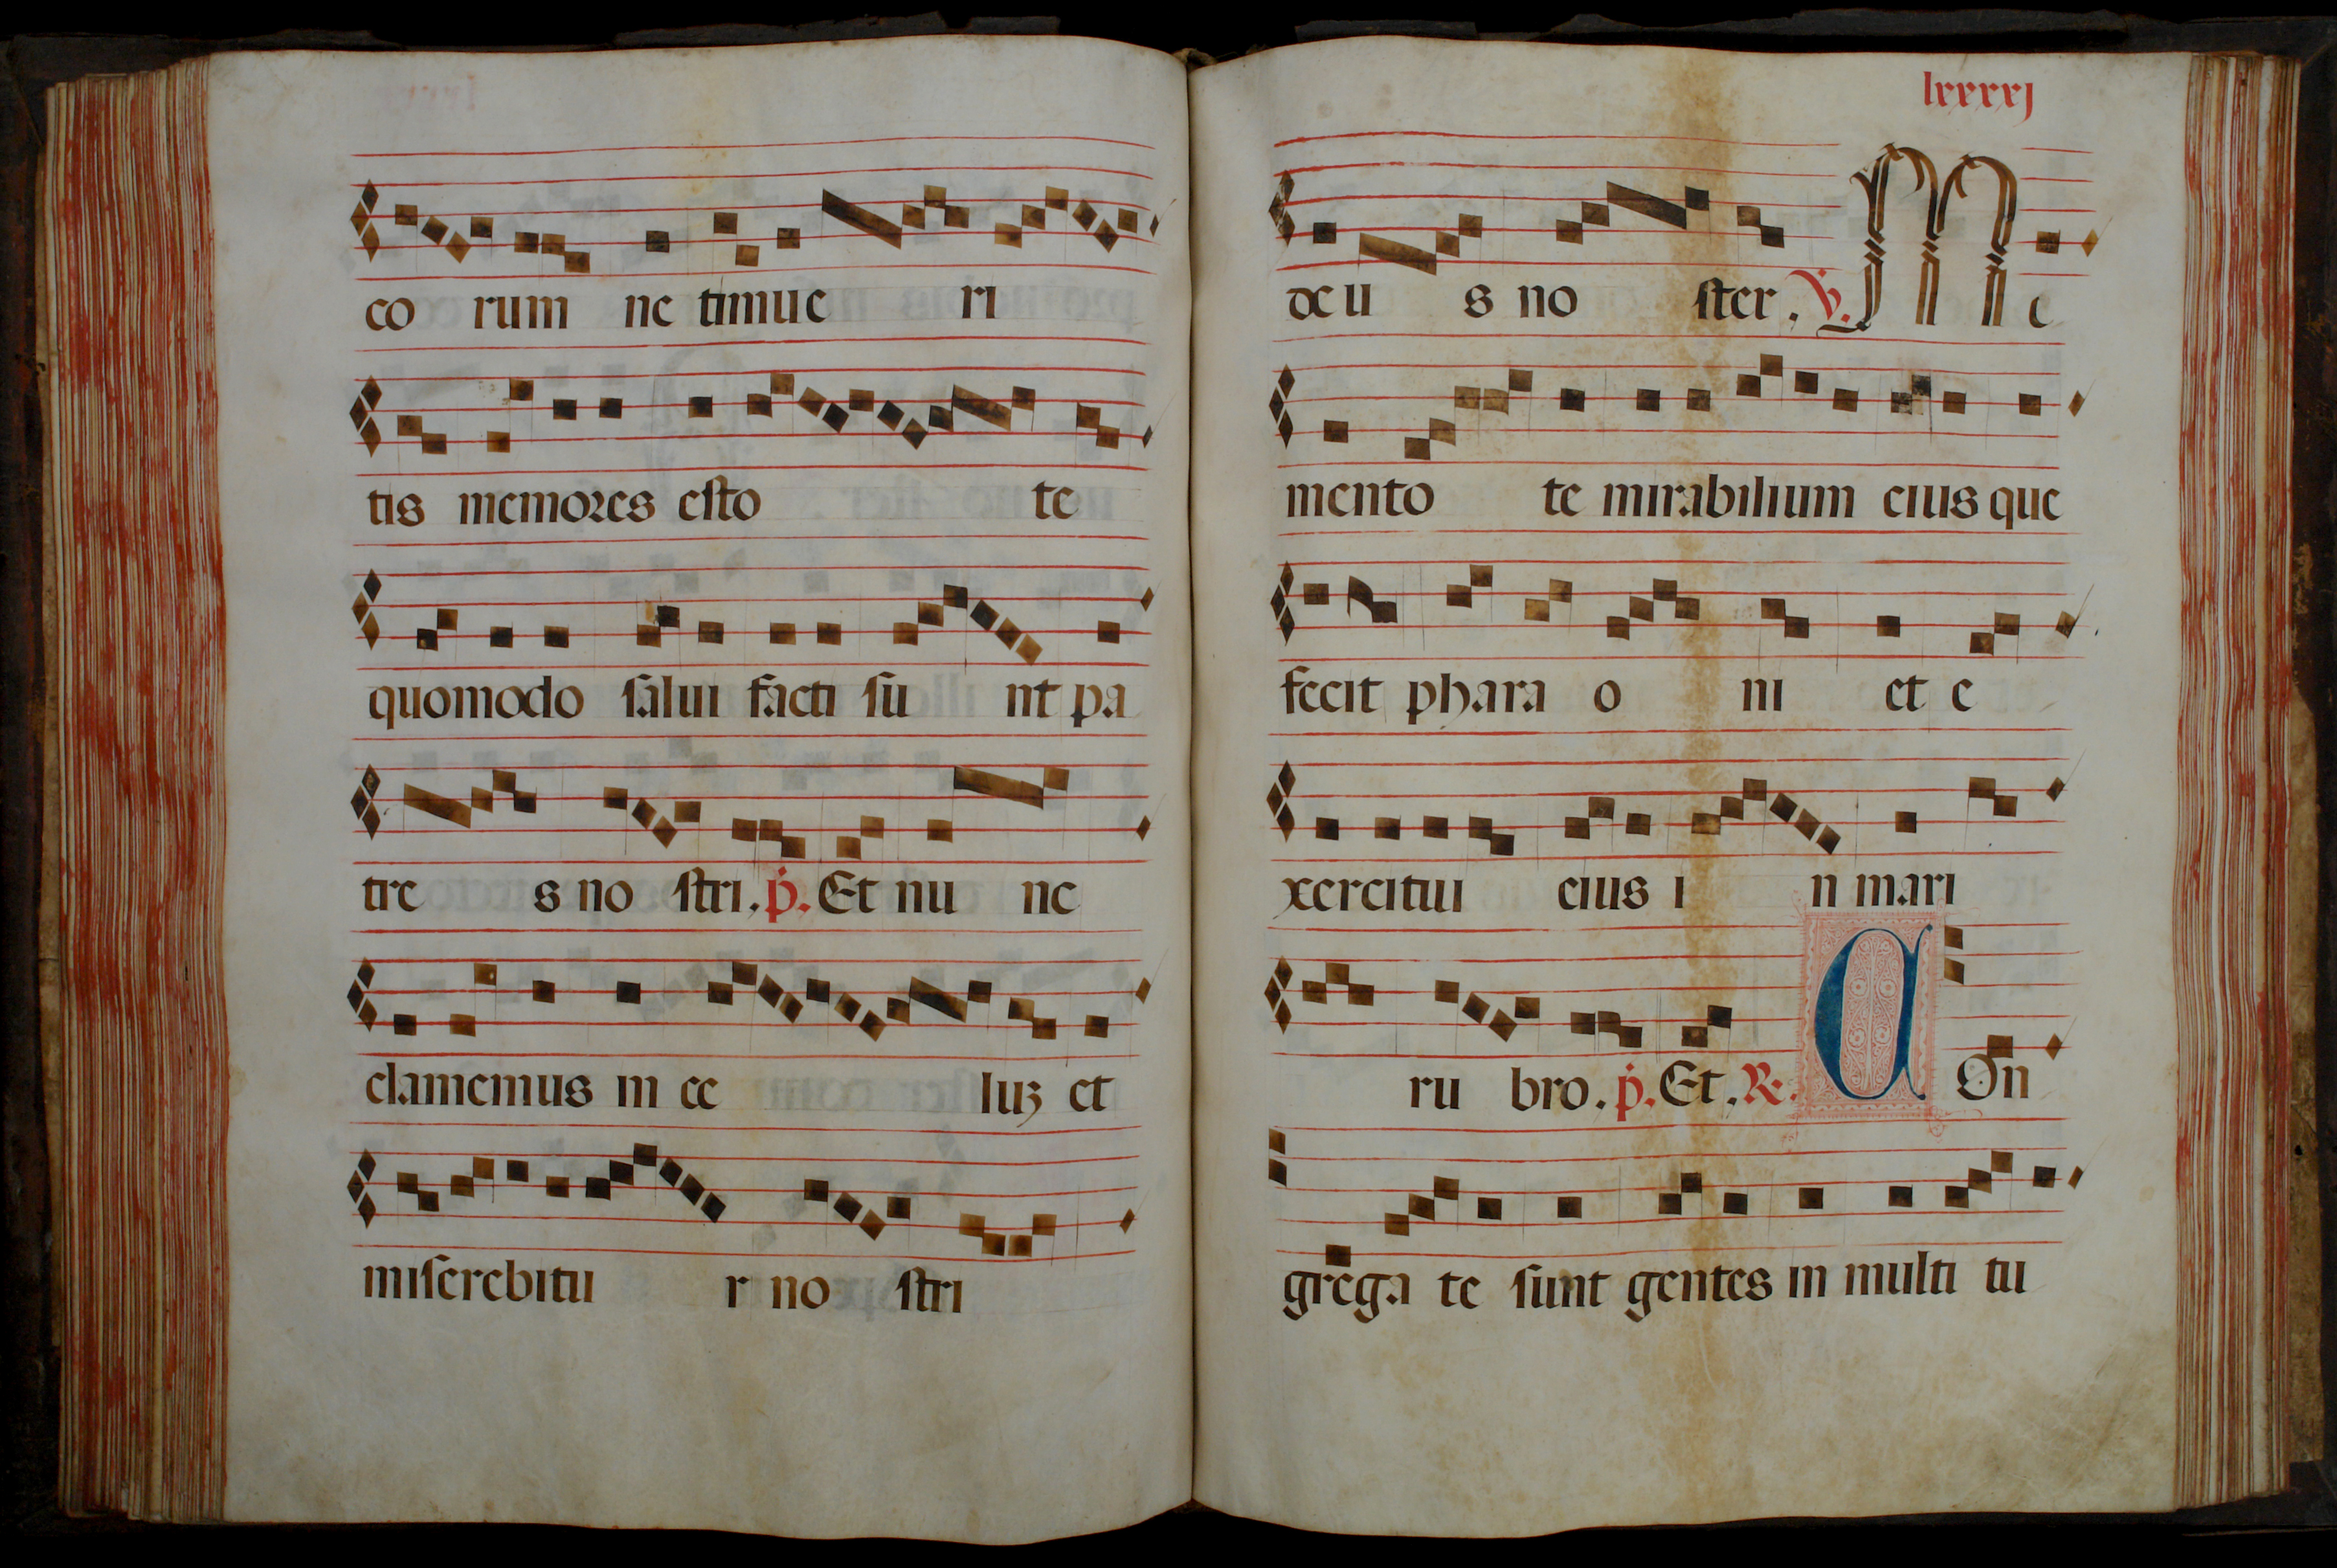 co rum ne timue ri
tis memores esto te
quomodo salui facti su nt pa
tre s no stri. p. Et nu nc
clamemus in ce luz et
miserebitu r no stri
lxxxxj
deu s no ster. V. M e
mento te mirabilium eius que
fecit phara o ni et e
xercitui eius i n mari
ru bro. p. Et. R. C On
grega te sunt gentes in multi tu